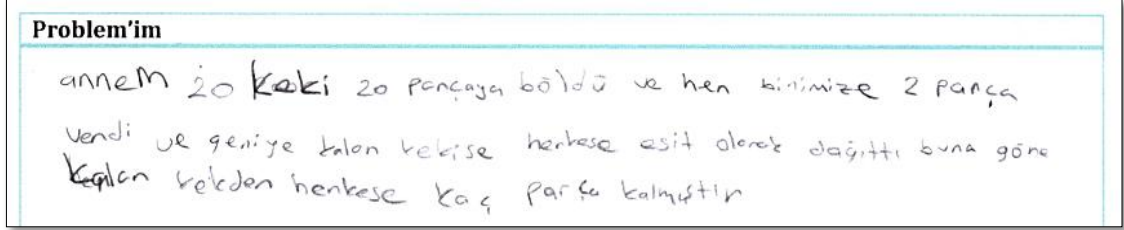 Problem'im
annem 20 keki 20 parçaya böldü ve her birimize 2 parça
verdi ve geriye kalan kekise herkese eşit olarak dağıttı buna göre
kalan kekden herkese kaç parça kalmıştır